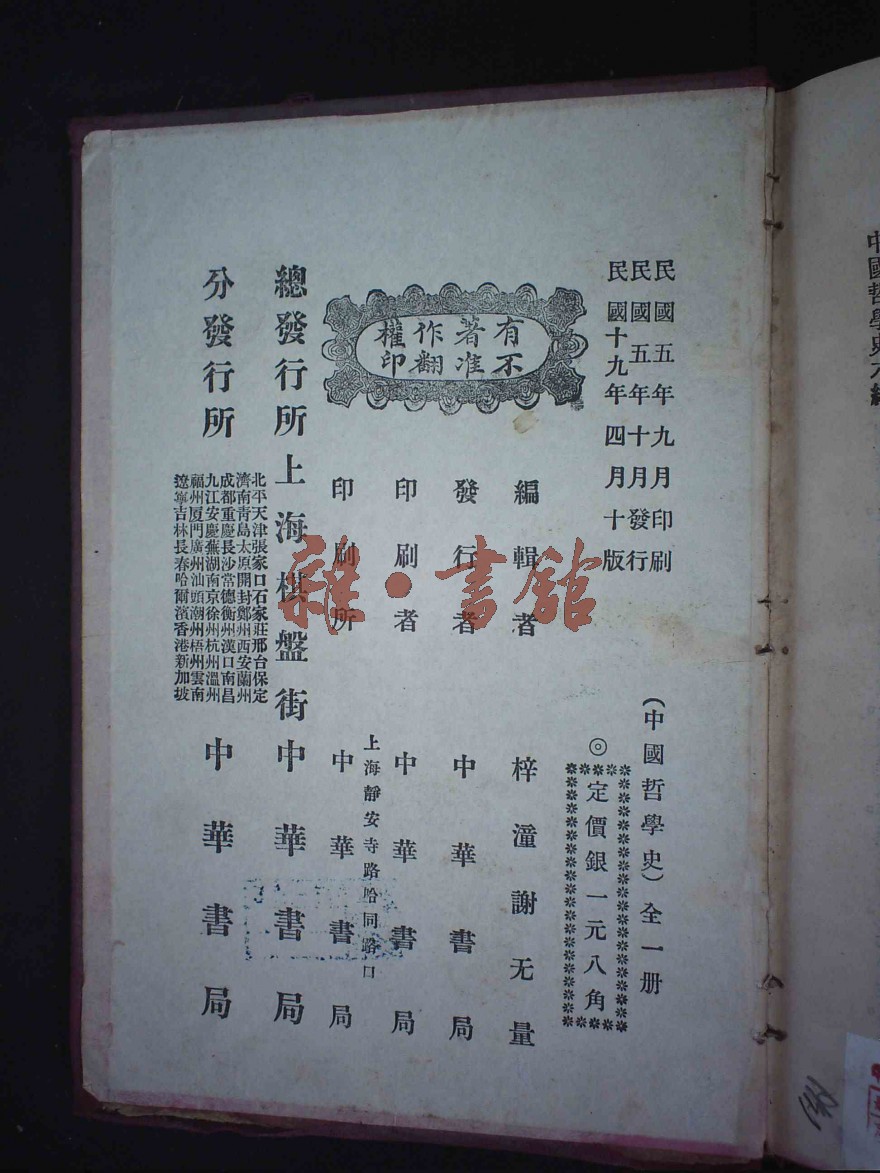 民國五年九月印刷
民國五年十月發行
民國十九年四月十版
（中國哲學史）全一册
◎定價銀一元八角
有著作權
不准翻印
編輯者 梓潼謝无量
發行者 中華書局
印刷者 中華書局
上海靜安寺路哈同路口
印刷所 中華書局
總發行所 上海棋盤街 中華書局
分發行所
北平天津張家口石家莊邢台保定
濟南青島太原開封鄭州西安蘭州
成都重慶長沙常德衡州漢口南昌
九江安慶蕪湖南京徐州杭州溫州
福州厦門廣州汕頭潮州梧州雲南
遼寧吉林長春哈爾濱香港新加坡
中華書局
雜·書館
中國哲學史